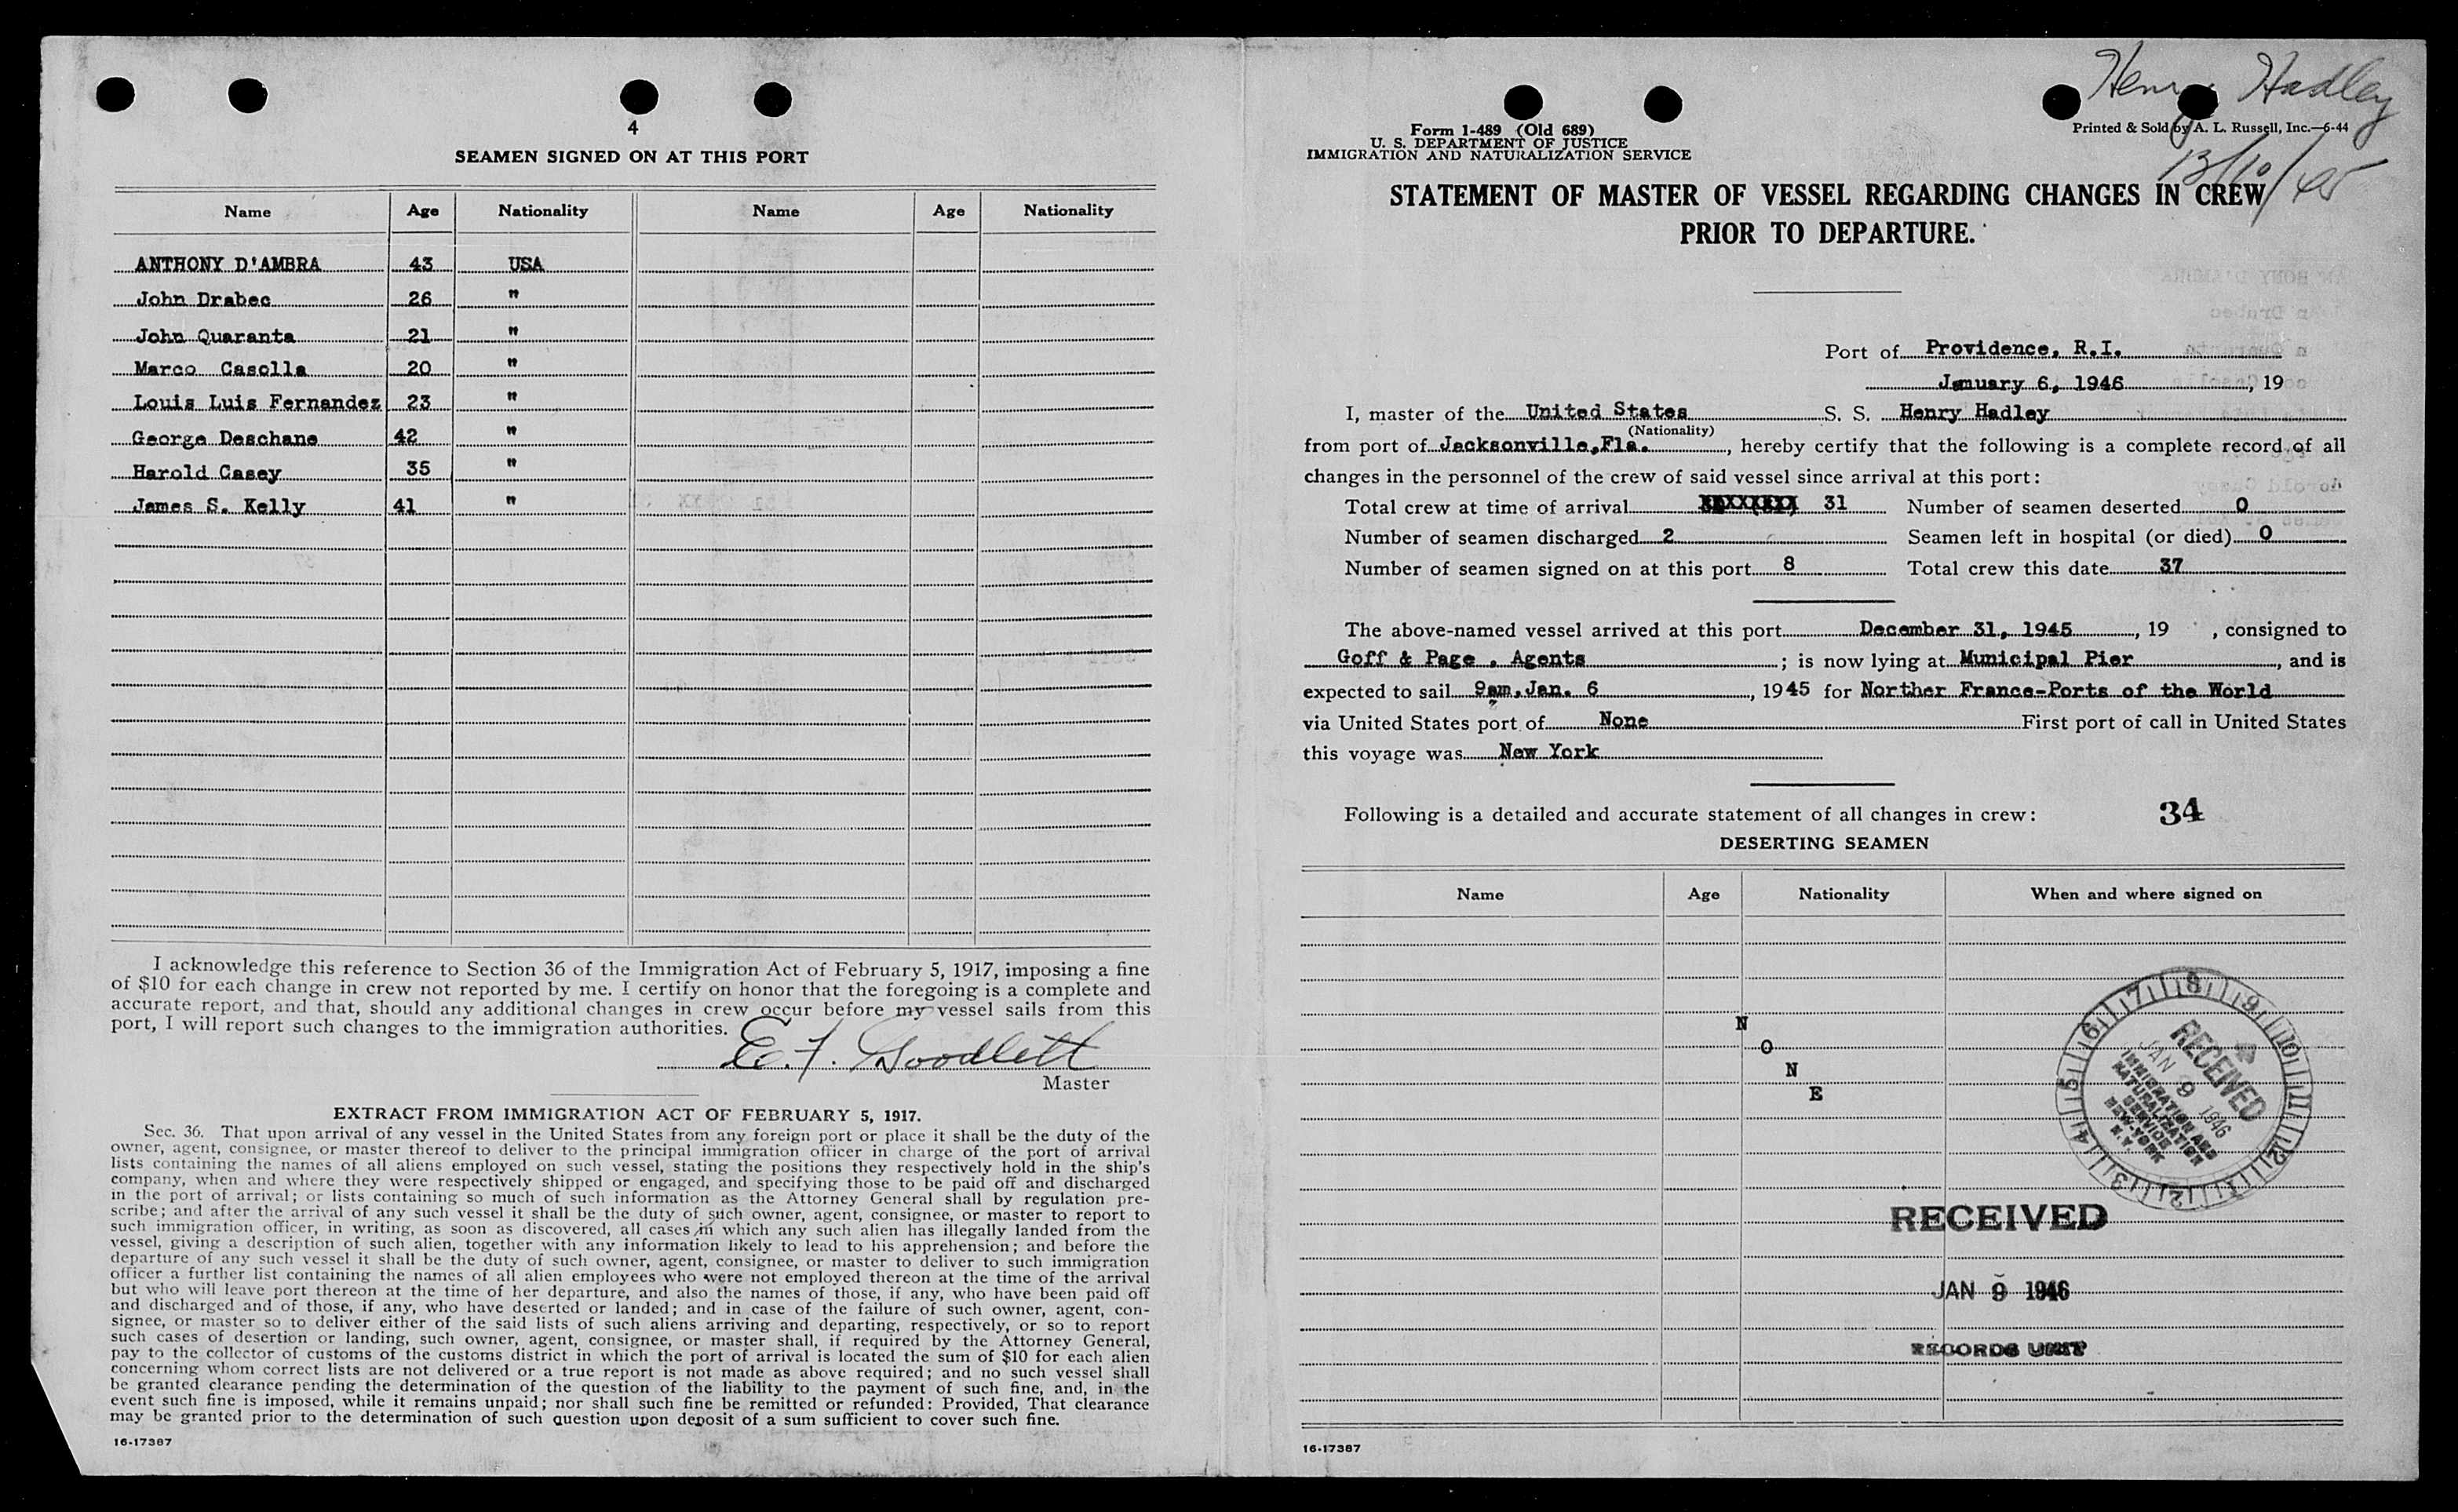 4
SEAMEN SIGNED ON AT THIS PORT
Name Age Nationality Name Age Nationality
ANTHONY D'AMBRA 43 USA
John Drabec 26 "
John Quaranta 21 "
Marco Casolla 20 "
Louis Luis Fernandez 23 "
George Deschane 42 "
Harold Casey 35 "
James S. Kelly 41 "
I acknowledge this reference to Section 36 of the Immigration Act of February 5, 1917, imposing a fine
of $10 for each change in crew not reported by me. I certify on honor that the foregoing is a complete and
accurate report, and that, should any additional changes in crew occur before my vessel sails from this
port, I will report such changes to the immigration authorities.
E. F. Goodlett
Master
EXTRACT FROM IMMIGRATION ACT OF FEBRUARY 5, 1917.
Sec. 36. That upon arrival of any vessel in the United States from any foreign port or place it shall be the duty of the
owner, agent, consignee, or master thereof to deliver to the principal immigration officer in charge of the port of arrival
lists containing the names of all aliens employed on such vessel, stating the positions they respectively hold in the ship's
company, when and where they were respectively shipped or engaged, and specifying those to be paid off and discharged
in the port of arrival; or lists containing so much of such information as the Attorney General shall by regulation pre-
scribe; and after the arrival of any such vessel it shall be the duty of such owner, agent, consignee, or master to report to
such immigration officer, in writing, as soon as discovered, all cases in which any such alien has illegally landed from the
vessel, giving a description of such alien, together with any information likely to lead to his apprehension; and before the
departure of any such vessel it shall be the duty of such owner, agent, consignee, or master to deliver to such immigration
officer a further list containing the names of all alien employees who were not employed thereon at the time of the arrival
but who will leave port thereon at the time of her departure, and also the names of those, if any, who have been paid off
and discharged and of those, if any, who have deserted or landed; and in case of the failure of such owner, agent, con-
signee, or master so to deliver either of the said lists of such aliens arriving and departing, respectively, or so to report
such cases of desertion or landing, such owner, agent, consignee, or master shall, if required by the Attorney General,
pay to the collector of customs of the customs district in which the port of arrival is located the sum of $10 for each alien
concerning whom correct lists are not delivered or a true report is not made as above required; and no such vessel shall
be granted clearance pending the determination of the question of the liability to the payment of such fine, and, in the
event such fine is imposed, while it remains unpaid; nor shall such fine be remitted or refunded: Provided, That clearance
may be granted prior to the determination of such question upon deposit of a sum sufficient to cover such fine.
16-17387
Henry Hadley
Form 1-489 (Old 689)
U. S. DEPARTMENT OF JUSTICE
IMMIGRATION AND NATURALIZATION SERVICE
Printed & Sold by A. L. Russell, Inc.—6-44
STATEMENT OF MASTER OF VESSEL REGARDING CHANGES IN CREW
PRIOR TO DEPARTURE.
Port of Providence, R.I.
January 6, 1946, 19
I, master of the United States S. S. Henry Hadley
(Nationality)
from port of Jacksonville, Fla., hereby certify that the following is a complete record of all
changes in the personnel of the crew of said vessel since arrival at this port:
Total crew at time of arrival 31 Number of seamen deserted 0
Number of seamen discharged 2 Seamen left in hospital (or died) 0
Number of seamen signed on at this port 8 Total crew this date 37
The above-named vessel arrived at this port December 31, 1945, 19 , consigned to
Goff & Page . Agents ; is now lying at Municipal Pier, and is
expected to sail 9am, Jan. 6, 1945 for Norther France-Ports of the World
via United States port of None First port of call in United States
this voyage was New York
Following is a detailed and accurate statement of all changes in crew: 34
DESERTING SEAMEN
Name Age Nationality When and where signed on
N
O
N
E
RECEIVED
JAN 9 1946
IMMIGRATION AND
NATURALIZATION
SERVICE
NEW-YORK
N.Y.
RECEIVED
JAN 9 1946
RECORDS UNIT
16-17387